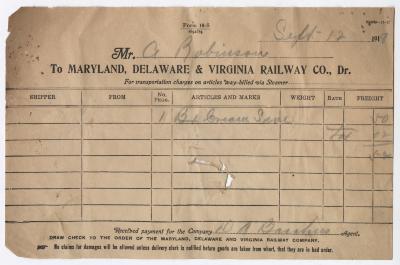 Form 18-S
Sept 12 191
Mr. A Robinson
To MARYLAND, DELAWARE & VIRGINIA RAILWAY CO., Dr.
For transportation charges on articles way-billed via Steamer
SHIPPER FROM No. Pkgs. ARTICLES AND MARKS WEIGHT RATE FREIGHT
1 Bx Cream 50
Tax 02
52
Received payment for the Company Agent.
DRAW CHECK TO THE ORDER OF THE MARYLAND, DELAWARE AND VIRGINIA RAILWAY COMPANY.
No claims for damages will be allowed unless delivery clerk is notified before goods are taken from wharf, that they are in bad order.